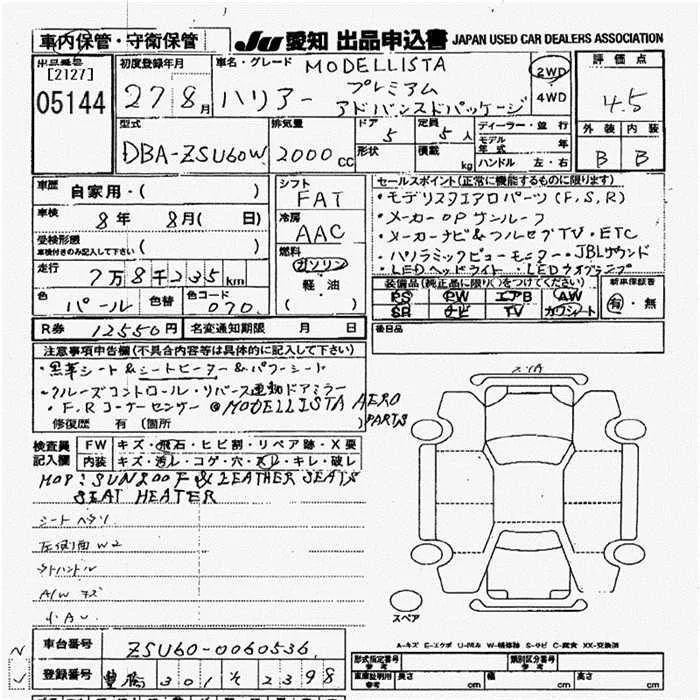 車内保管・守衛保管 JU 愛知 出品申込書 JAPAN USED CAR DEALERS ASSOCIATION
出品番号 [2127] 05144
初度登録年月 27年 8月
車名・グレード MODELLISTA
ハリアー プレミアム
アドバンスドパッケージ
2WD
4WD
評価点 4.5
外装 内装
B B
型式 DBA-ZSU60W
排気量 2000cc
ドア 5 定員 5人
形状 積載 kg
ディーラー・並行
モデル年式 年
ハンドル 左・右
車歴 自家用・( )
車検 8年 8月( 日)
受検形態 車検付きのみ記入して下さい ( )
走行 7万8千235km
色 パール 色替 色コード 070
シフト FAT
冷房 AAC
燃料 ガソリン・軽・油 ( )
セールスポイント(正常に機能するものに限ります)
・モデリスタエアロパーツ(F,S,R)
・メーカーOPサンルーフ
・メーカーナビ&フルセグTV・ETC
・パノラミックビューモニター・JBLサウンド
・LEDヘッドライト・LED
装備品(純正品に限り○をつけてください)
PS PW エアB AW
SR ナビ TV カワシート
新車保証書 有・無
R券 12550円 名変通知期限 月 日
後日品
注意事項申告欄(不具合内容等は具体的に記入して下さい)
・黒革シート&シートヒーター&パワーシート
・クルーズコントロール・リバース連動ドアミラー
・F,Rコーナーセンサー @MODELLISTA AERO PARTS
修復歴 有 (箇所 )
検査員記入欄
FW キズ・飛石・ヒビ割・リペア跡・X要
内装 キズ・汚レ・コゲ・穴・スレ・キレ・破レ
MOP: SUNROOF & LEATHER SEATS
SEAT HEATER
シートヘタリ
左側面W2
スレハンドル
A/Wキズ
小AU
スペア
A-キズ E-エクボ U-凹み W-補修跡 S-サビ C-腐食 XX-交換済
車台番号 ZSU60-0060536
登録番号 豊橋 301 そ 2398
形式指定番号 参考 類別区分番号 参考
車庫証明用 参考 長さ cm 幅 cm 高さ cm